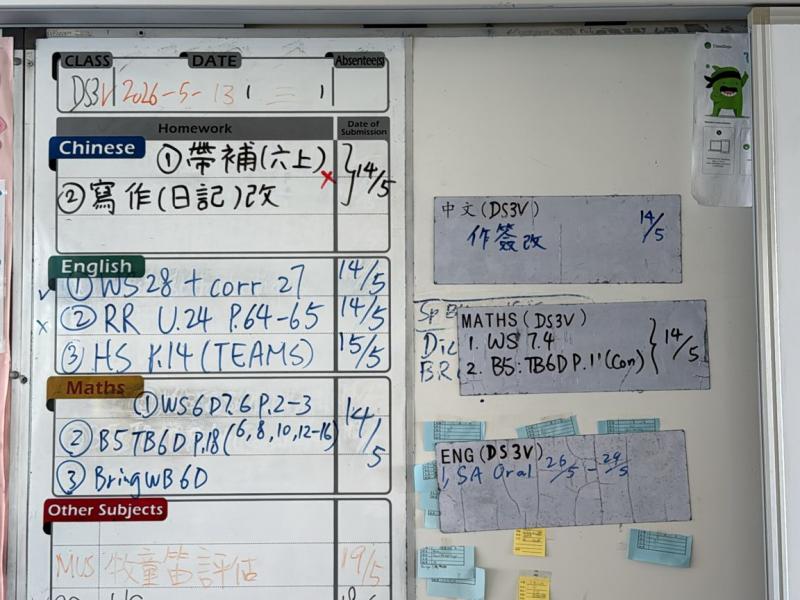 CLASS DATE Absentee(s)
DS3V 2026-5-13 1 三 1
Homework Date of Submission
Chinese ①帶補(六上) 14/5
②寫作(日記)改
English
①WS 28 + corr 27 14/5
②RR U.24 P.64-65 14/5
③HS P.14 (TEAMS) 15/5
Maths
①WS6D7.6 P.2-3 14/5
②B5 TB6D P.18(6,8,10,12-16)
③Bring WB 6D
Other Subjects
MUS 牧童笛評估 19/5
中文(DS3V) 14/5
作簽改
MATHS (DS3V)
1. WS 7.4 14/5
2. B5: TB6D P.11(Con)
ENG (DS3V)
1, SA Oral 26/5 - 29/5